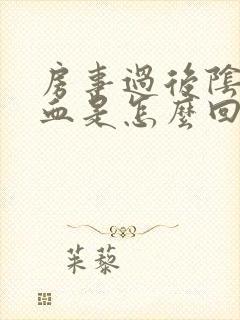 房事過後陰
血是怎麼回
茱藜